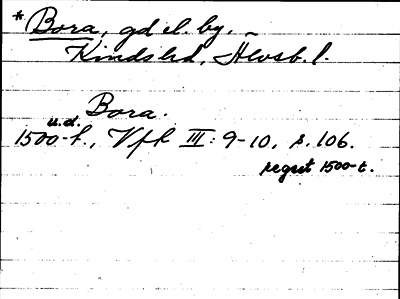 * Bora, gd el. by,
Kinds hd, Hvsb. l.
Bora.
u.d.
1500-t., Vfk III: 9-10, s. 106.
regest 1500-t.